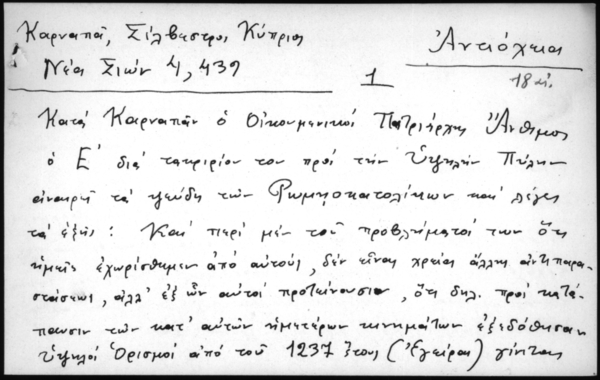 Καρναπᾶ, Σίλβεστρος Κύπριος
Ἀντιόχεια
Νέα Σιών 4, 439
1
18 αἰ.
Κατά Καρναπᾶν ὁ Οἰκουμενικός Πατριάρχης Ἄνθιμος
ὁ Ε΄ διά τακριρίου του πρός τήν Ὑψηλήν Πύλην
ἀναιρεῖ τά ψεύδη τῶν Ρωμηοκατολίκων καί λέγει
τά ἑξῆς: Καί περί μέν τοῦ προβλήματός των ὅτι
ἡμεῖς ἐχωρίσθημεν ἀπό αὐτούς, δέν εἶναι χρεία ἄλλης ἀντιπαρα-
στάσεως, ἀλλ' ἐξ ὧν αὐτοί προτείνουσιν, ὅτι δηλ. πρός κατά-
παυσιν τῶν κατ' αὐτῶν ἡμετέρων κινημάτων ἐξεδόθησαν
Ὑψηλοί Ὁρισμοί ἀπό τοῦ 1237 ἔτους (Ἐγείρας) γίνεται